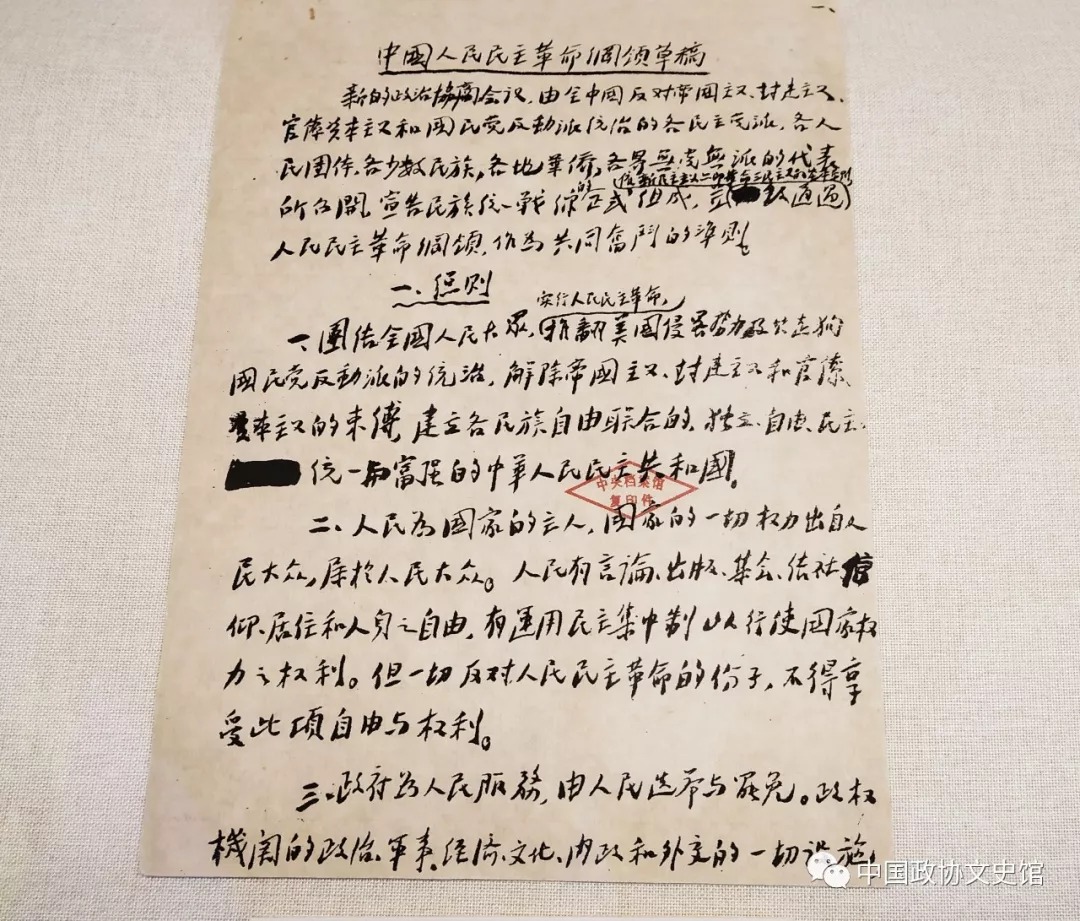 中國人民民主革命綱領草稿
新的政治協商会议，由全中国反对帝国主义、封建主义、
官僚资本主义和国民党反動派统治的各民主党派、各人
民团体、各少数民族，各地華僑，各界無党無派的代表
所召開，宣告民族统一戰線的正式组成，並 致通过
人民民主革命綱領，作为共同奮鬥的準则。
一、总则
实行人民民主革命，
一、團结全國人民大眾，推翻美國侵略势力及其走狗
國民党反動派的统治，解除帝國主义、封建主义和官僚
资本主义的束缚，建立各民族自由联合的，独立、自由、民主、
统一与富强的中華人民民主共和國。
中央档案馆
复印件
二、人民為國家的主人，国家的一切权力出自人
民大众，属於人民大众。人民有言論、出版、集会、结社、信
仰、居住和人身之自由，有運用民主集中制以行使国家权
力之权利。但一切反对人民民主革命的份子，不得享
受此项自由与权利。
三、政府为人民服務，由人民选举与罢免。政权
機関的政治、军事、经济、文化、内政和外交的一切设施，
中国政协文史馆